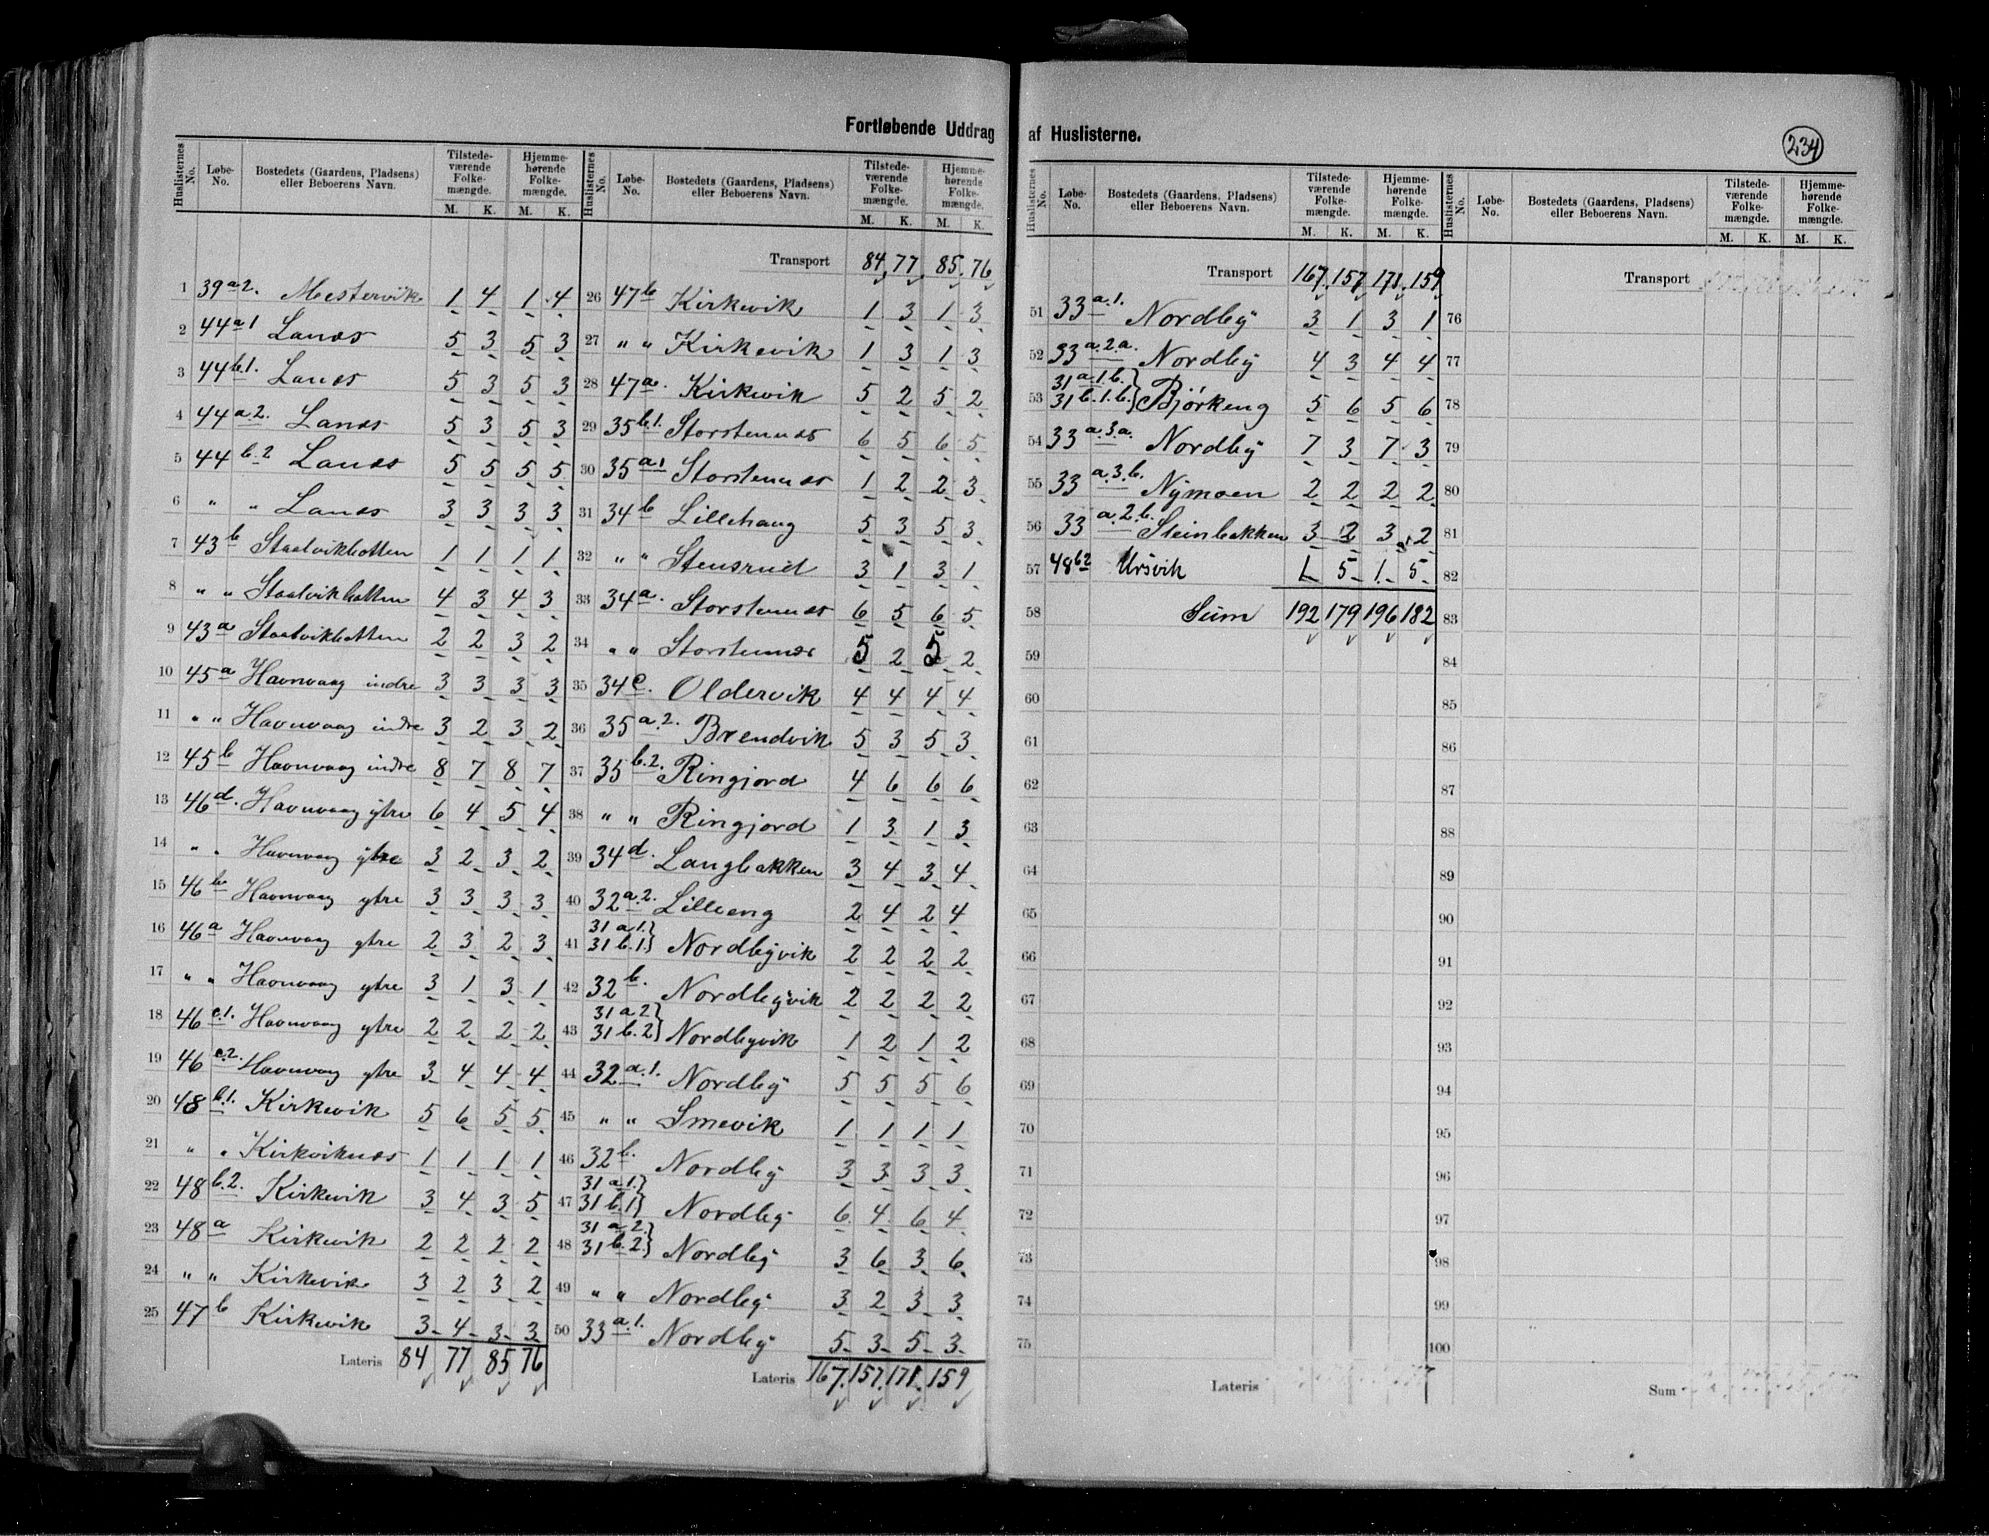 Fortløbende Uddrag af Huslisterne.
234
Huslisternes No. Løbe-No. Bostedets (Gaardens, Pladsens) eller Beboerens Navn. Tilstedeværende Folkemængde. M. K. Hjemmehørende Folkemængde. M. K.
1 39 a 2. Mestervik 1 4 1 4
2 44 a 1 Lanes 5 3 5 3
3 44 b.1. Lanes 5 3 5 3
4 44 a.2. Lanes 5 3 5 3
5 44 b.2 Lanes 5 5 5 5
6 " " Lanes 3 3 3 3
7 43 b Staalvikbotten 1 1 1 1
8 " " Staalvikbotten 4 3 4 3
9 43 a Staalvikbotten 2 2 3 2
10 45 a Havnvaag indre 3 3 3 3
11 " " Havnvaag indre 3 2 3 2
12 45 b Havnvaag indre 8 7 8 7
13 46 d. Havnvaag ytre 6 4 5 4
14 " " Havnvaag ytre 3 2 3 2
15 46 b Havnvaag ytre 3 3 3 3
16 46 a Havnvaag ytre 2 3 2 3
17 " " Havnvaag ytre 3 1 3 1
18 46 c.1. Havnvaag ytre 2 2 2 2
19 46 c.2. Havnvaag ytre 3 4 4 4
20 48 b.1. Kirkevik 5 6 5 5
21 " " Kirkviknes 1 1 1 1
22 48 b.2. Kirkevik 3 4 3 5
23 48 a Kirkevik 2 2 2 2
24 " " Kirkevik 3 2 3 2
25 47 b Kirkevik 3 4 3 3
Lateris 84 77 85 76
Huslisternes No. Løbe-No. Bostedets (Gaardens, Pladsens) eller Beboerens Navn. Tilstedeværende Folkemængde. M. K. Hjemmehørende Folkemængde. M. K.
Transport 84 77 85 76
26 47 b Kirkevik 1 3 1 3
27 " " Kirkevik 1 3 1 3
28 47 a. Kirkevik 5 2 5 2
29 35 b.1. Storstennes 6 5 6 5
30 35 a 1 Storstennes 1 2 2 3
31 34 b Lillehaug 5 3 5 3
32 " " Stensrud 3 1 3 1
33 34 a. Storstennes 6 5 6 5
34 " " Storstennes 5 2 5 2
35 34 c. Oldervik 4 4 4 4
36 35 a.2. Brendvik 5 3 5 3
37 35 b.2. Ringjord 4 6 6 6
38 " " Ringjord 1 3 1 3
39 34 d. Langbakken 3 4 3 4
40 32 a.2. Lilleeng 2 4 2 4
31 a 1.}
41 31 b.1.} Nordbyvik 2 2 2 2
42 32 b. Nordbyvik 2 2 2 2
31 a 2}
43 31 b.2} Nordbyvik 1 2 1 2
44 32 a.1. Nordby 5 5 5 6
45 " " Smevik 1 1 1 1
46 32 b. Nordby 3 3 3 3
31 a 1.}
47 31 b.1} Nordby 6 4 6 4
31 a 2.}
48 31 b.2.} Nordby 3 6 3 6
49 " " Nordby 3 2 3 3
50 33 a.1. Nordby 5 3 5 3
Lateris 167 157 171 159
Huslisternes No. Løbe-No. Bostedets (Gaardens, Pladsens) eller Beboerens Navn. Tilstedeværende Folkemængde. M. K. Hjemmehørende Folkemængde. M. K.
Transport 167 157 171 159
51 33 a.1. Nordby 3 1 3 1
52 33 a.2.a. Nordby 4 3 4 4
31 a.1.b.}
53 31 b.1.b.} Bjørkeng 5 6 5 6
54 33 a.3.a. Nordby 7 3 7 3
55 33 a.3.b. Nymoen 2 2 2 2
56 33 a.2.b. Steinbakken 3 2 3 2
57 48 b2 Ursvik 1 5 1 5
58 Sum 192 179 196 182
59
60
61
62
63
64
65
66
67
68
69
70
71
72
73
74
75
Lateris
Huslisternes No. Løbe-No. Bostedets (Gaardens, Pladsens) eller Beboerens Navn. Tilstedeværende Folkemængde. M. K. Hjemmehørende Folkemængde. M. K.
Transport
76
77
78
79
80
81
82
83
84
85
86
87
88
89
90
91
92
93
94
95
96
97
98
99
100
Sum